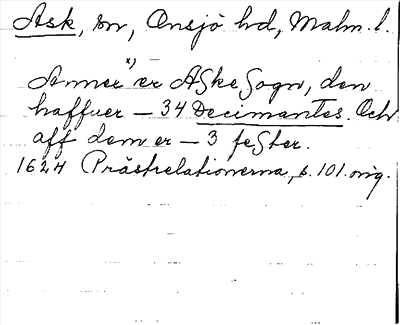 Ask, sn, Onsjö hd, Malm. l.
Annex x) er Aske Sogn, den
haffuer – 34 Decimantes. Och
aff dem er – 3 fester.
1624 Prästrelationerna, s. 101. orig.